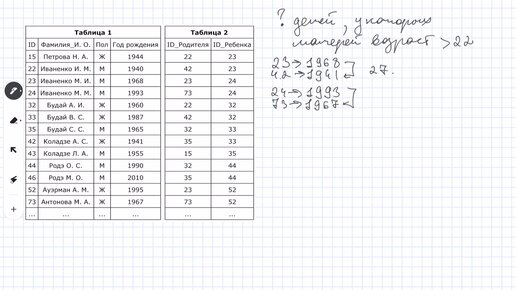 Таблица 1
ID Фамилия_И. О. Пол Год рождения
15 Петрова Н. А. Ж 1944
22 Иваненко И. М. М 1940
23 Иваненко М. И. М 1968
24 Иваненко М. М. М 1993
32 Будай А. И. Ж 1960
33 Будай В. С. Ж 1987
35 Будай С. С. М 1965
42 Коладзе А. С. Ж 1941
43 Коладзе Л. А. М 1955
44 Родэ О. С. М 1990
46 Родэ М. О. М 2010
52 Ауэрман А. М. Ж 1995
73 Антонова М. А. Ж 1967
... ... ... ...
Таблица 2
ID_Родителя ID_Ребенка
22 23
42 23
23 24
73 24
22 32
42 32
32 33
35 33
15 35
32 44
35 44
23 52
73 52
... ...
? детей, у которых
матерей возраст > 22
23 → 1968
42 → 1941
27.
24 → 1993
73 → 1967